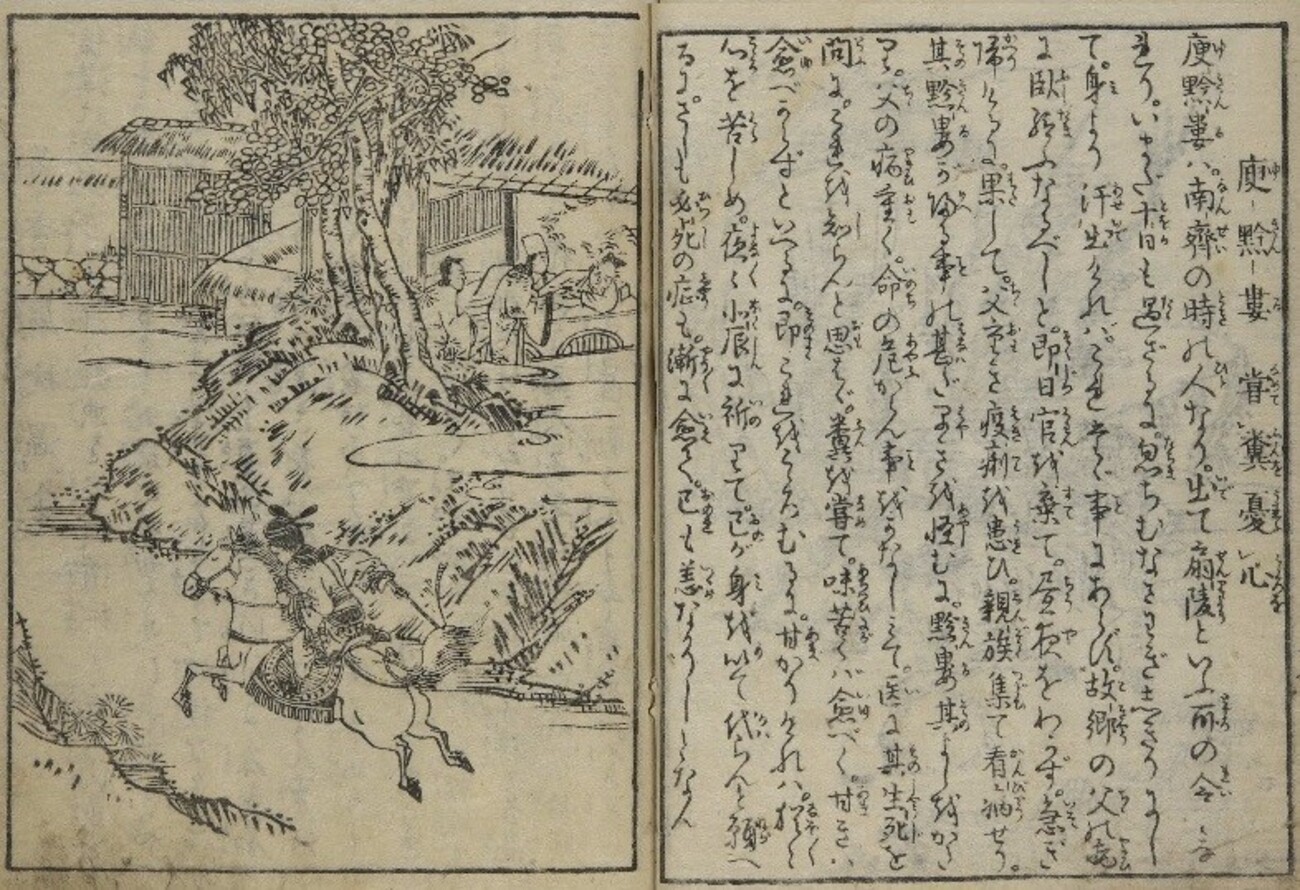 庾黔婁 嘗糞憂心
庾黔婁ハ南齊の時の人なり。出て扇陵といふ所の令となれり。
いまだ十日も過ざるに。忽ちむなさわぎしきりにし
て。身より汗出ければこれたゞ事にあらず。故郷の父の病
に臥給ふなるべしと。即日官を棄て。昼夜をわかず。急ぎ
帰りけるに。果して。父
疫痢を患ひ。親族集て看病せり。
其黔婁が帰る事の甚だ
はやきを怪むに。黔婁其よしをかたり。
父の病重く。命の危からん事を
医に其生死を
問に。これを知らんと思はゞ。糞を嘗て。味苦くハ愈べく。甘きハ
愈べからずといへるに。即これをこゝろむるに。甘かりければ。
心を苦しめ。夜々北辰に祈りて己が身を以て代らんと願へ
るに。さしも必死の症も。漸に愈て。己も恙なかりしとなん